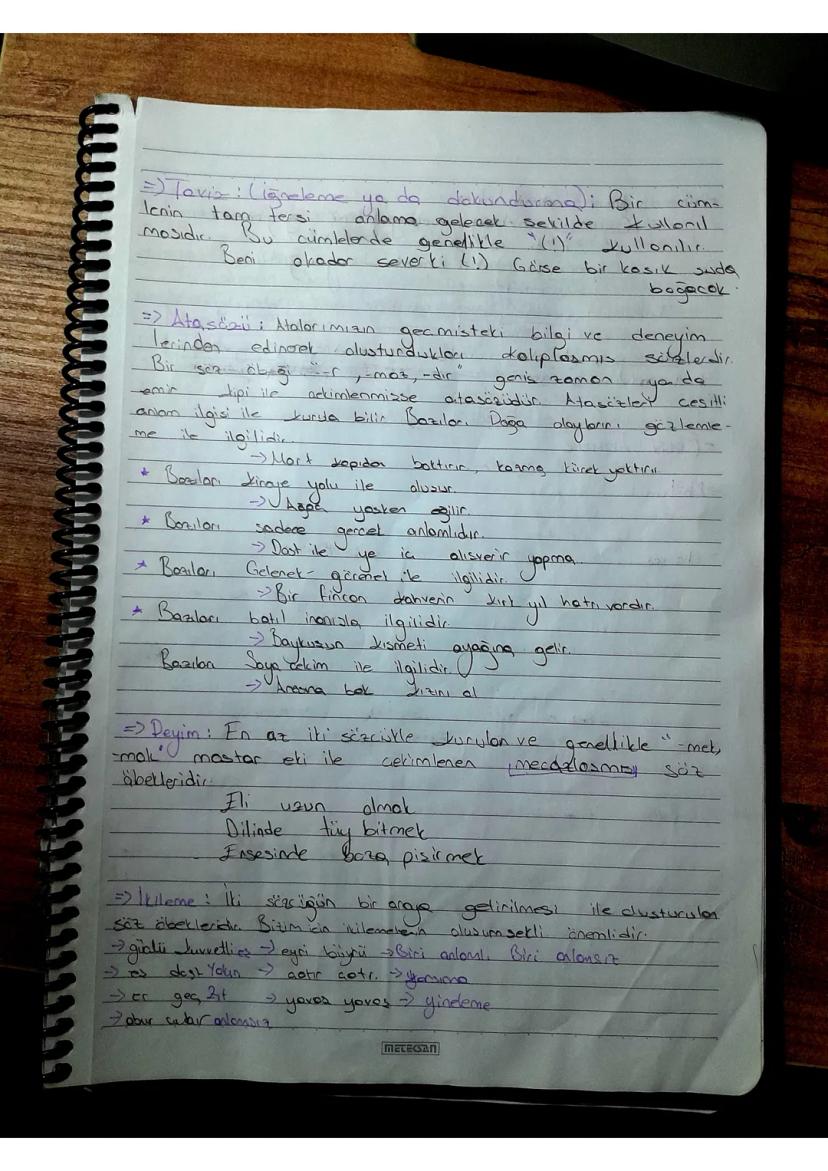 =) Tariz : (iğneleme ya da dokundurma) : Bir cüm-
lenin tam tersi anlama gelecek sekilde kullanıl
masıdır. Bu cümlelerde genelikle "(!)" kullanılır.
Beni okadar severki (!) Görse bir kasık suda
boğacak.
=) Atasözü : Atalarımızın gecmisteki bilgi ve deneyim
lerinden edinerek olusturdukları kalıplasmıs sözlerdir.
Bir söz öbeği "-r, -maz, -dır" genis zaman ya da
emir kipi ile cekimlenmisse atasözüdür. Atasözleri cesitli
anlam ilgisi ile kurula bilir Bazıları Doğa olaylarını gözlemle-
me ile ilgilidir.
-> Mart kapıdan baktırır, kazma kürek yaktırır.
* Bazıları kinaye yolu ile olusur.
-> Agac yasken eğilir.
* Bazıları sadece gercek anlamlıdır.
-> Dost ile ye ic alısverir yapma.
* Bazıları Gelenek-görenek ile ilgilidir.
-> Bir fincan kahvenin kırk yıl hatrı vardır.
* Bazıları batıl inancla ilgilidir.
-> Baykusun kısmeti ayağına gelir.
Bazıları Soya cekim ile ilgilidir.
-> Anasına bak kızını al
=> Deyim : En az iki sözcükle kurulan ve genellikle "-mek,
-mak" mastar eki ile cekimlenen mecazlasmıs söz
öbekleridir.
Eli uzun olmak
Dilinde tüy bitmek
Ensesinde boza pisirmek
=> Ikileme : İki sözcüğün bir araya getirilmesi ile olusturulan
söz öbekleridir. Bizim icin ikilemelerin olusum sekli önemlidir.
-> güclü kuvvetli es -> eyri büyrü -> Biri anlamlı Biri anlamsız
-> es dost Yakın -> catır catır. -> yansıma
-> er gec Zıt -> yavas yavas -> yineleme
-> abur cubur anlamsız
METEKSAN